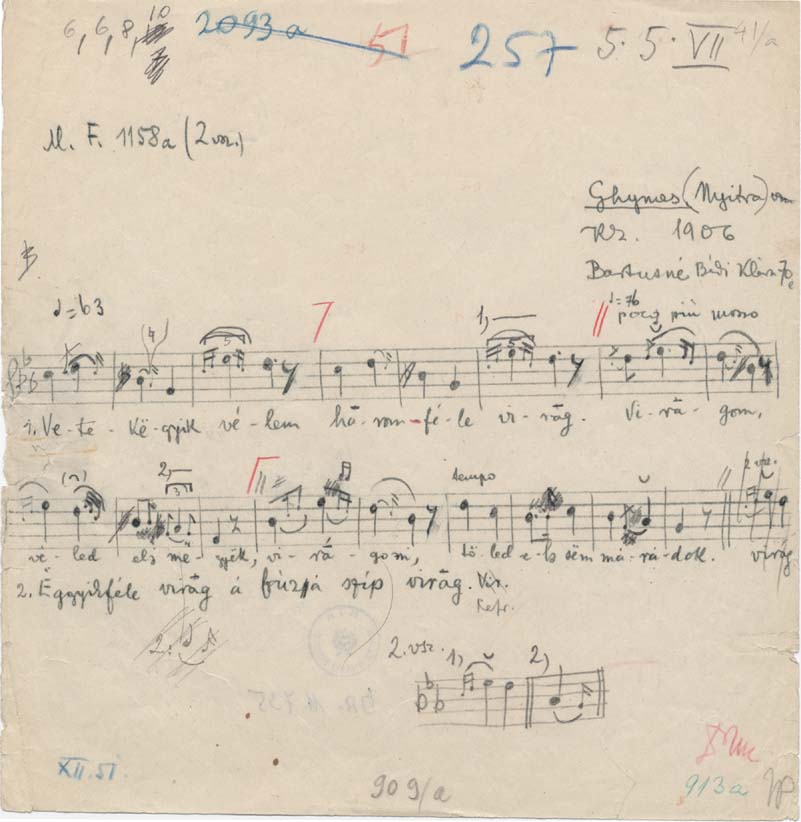 6, 6, 8, 10
2093a 51 257 5. 5. VII 41/a
M. F. 1158a (2 vsz.)
Ghymes (Nyitra) vm
Kz. 1906
Bartusné Bédi Klára 70
♩=63
♩=76
1, poco più mosso
1. Ve-te-kë-gyik vé-lem hā-rom-fé-le vi-rāg. Vi-rā-gom,
2,
tempo
2. vsz.
ve-led els më-gyëk, vi-rā-gom, tő-led e-ls sëm má-ra-dok. virág
2. Ëggyikféle virāg á
szíp virāg. Vir.
Refr.
2. vsz. 1, 2,
BR. 11.735
XII. 51.
909/a
913a